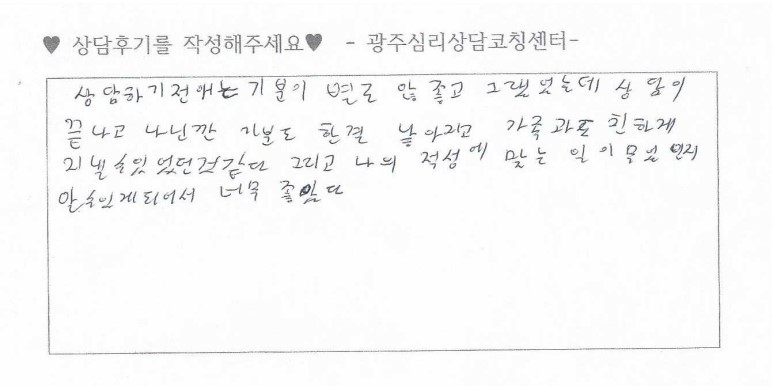 ♥ 상담후기를 작성해주세요♥ - 광주심리상담코칭센터-
상담하기전에는 기분이 별로 않좋고 그랬었는데 상담이
끝나고 나닌깐 기분도 한결 낳아지고 가족과도 친하게
지낼수있었던것같다 그리고 나의 적성에 맞는 일이 무엇인지
알수있게되어서 너무 좋았다